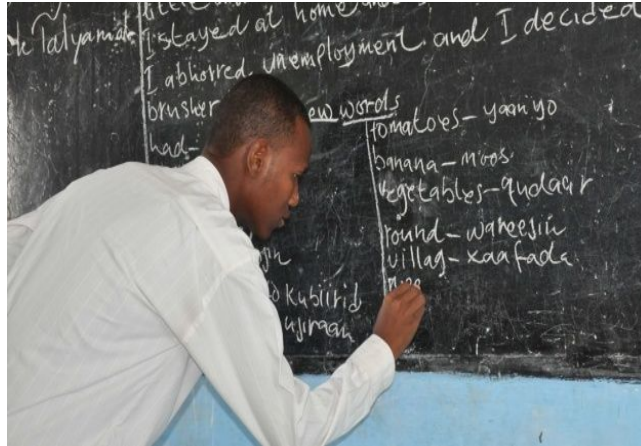 Talyamate
I stayed at home and
I abhorred unemployment and I decided
brusher
new words
had-
tomatoes - yaanyo
banana - moos
vegetables - qudaar
round - wareejin
villag - xaafada
kubiirid
ujiraan